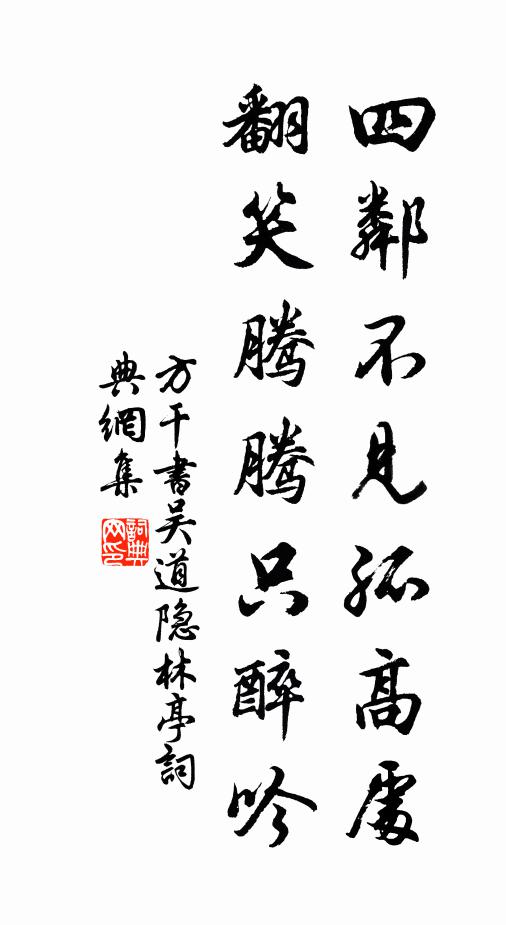 四鄰不見孤高處
翻笑騰騰只醉吟
方干書吳道隐林亭詞
典網集
詞典網印